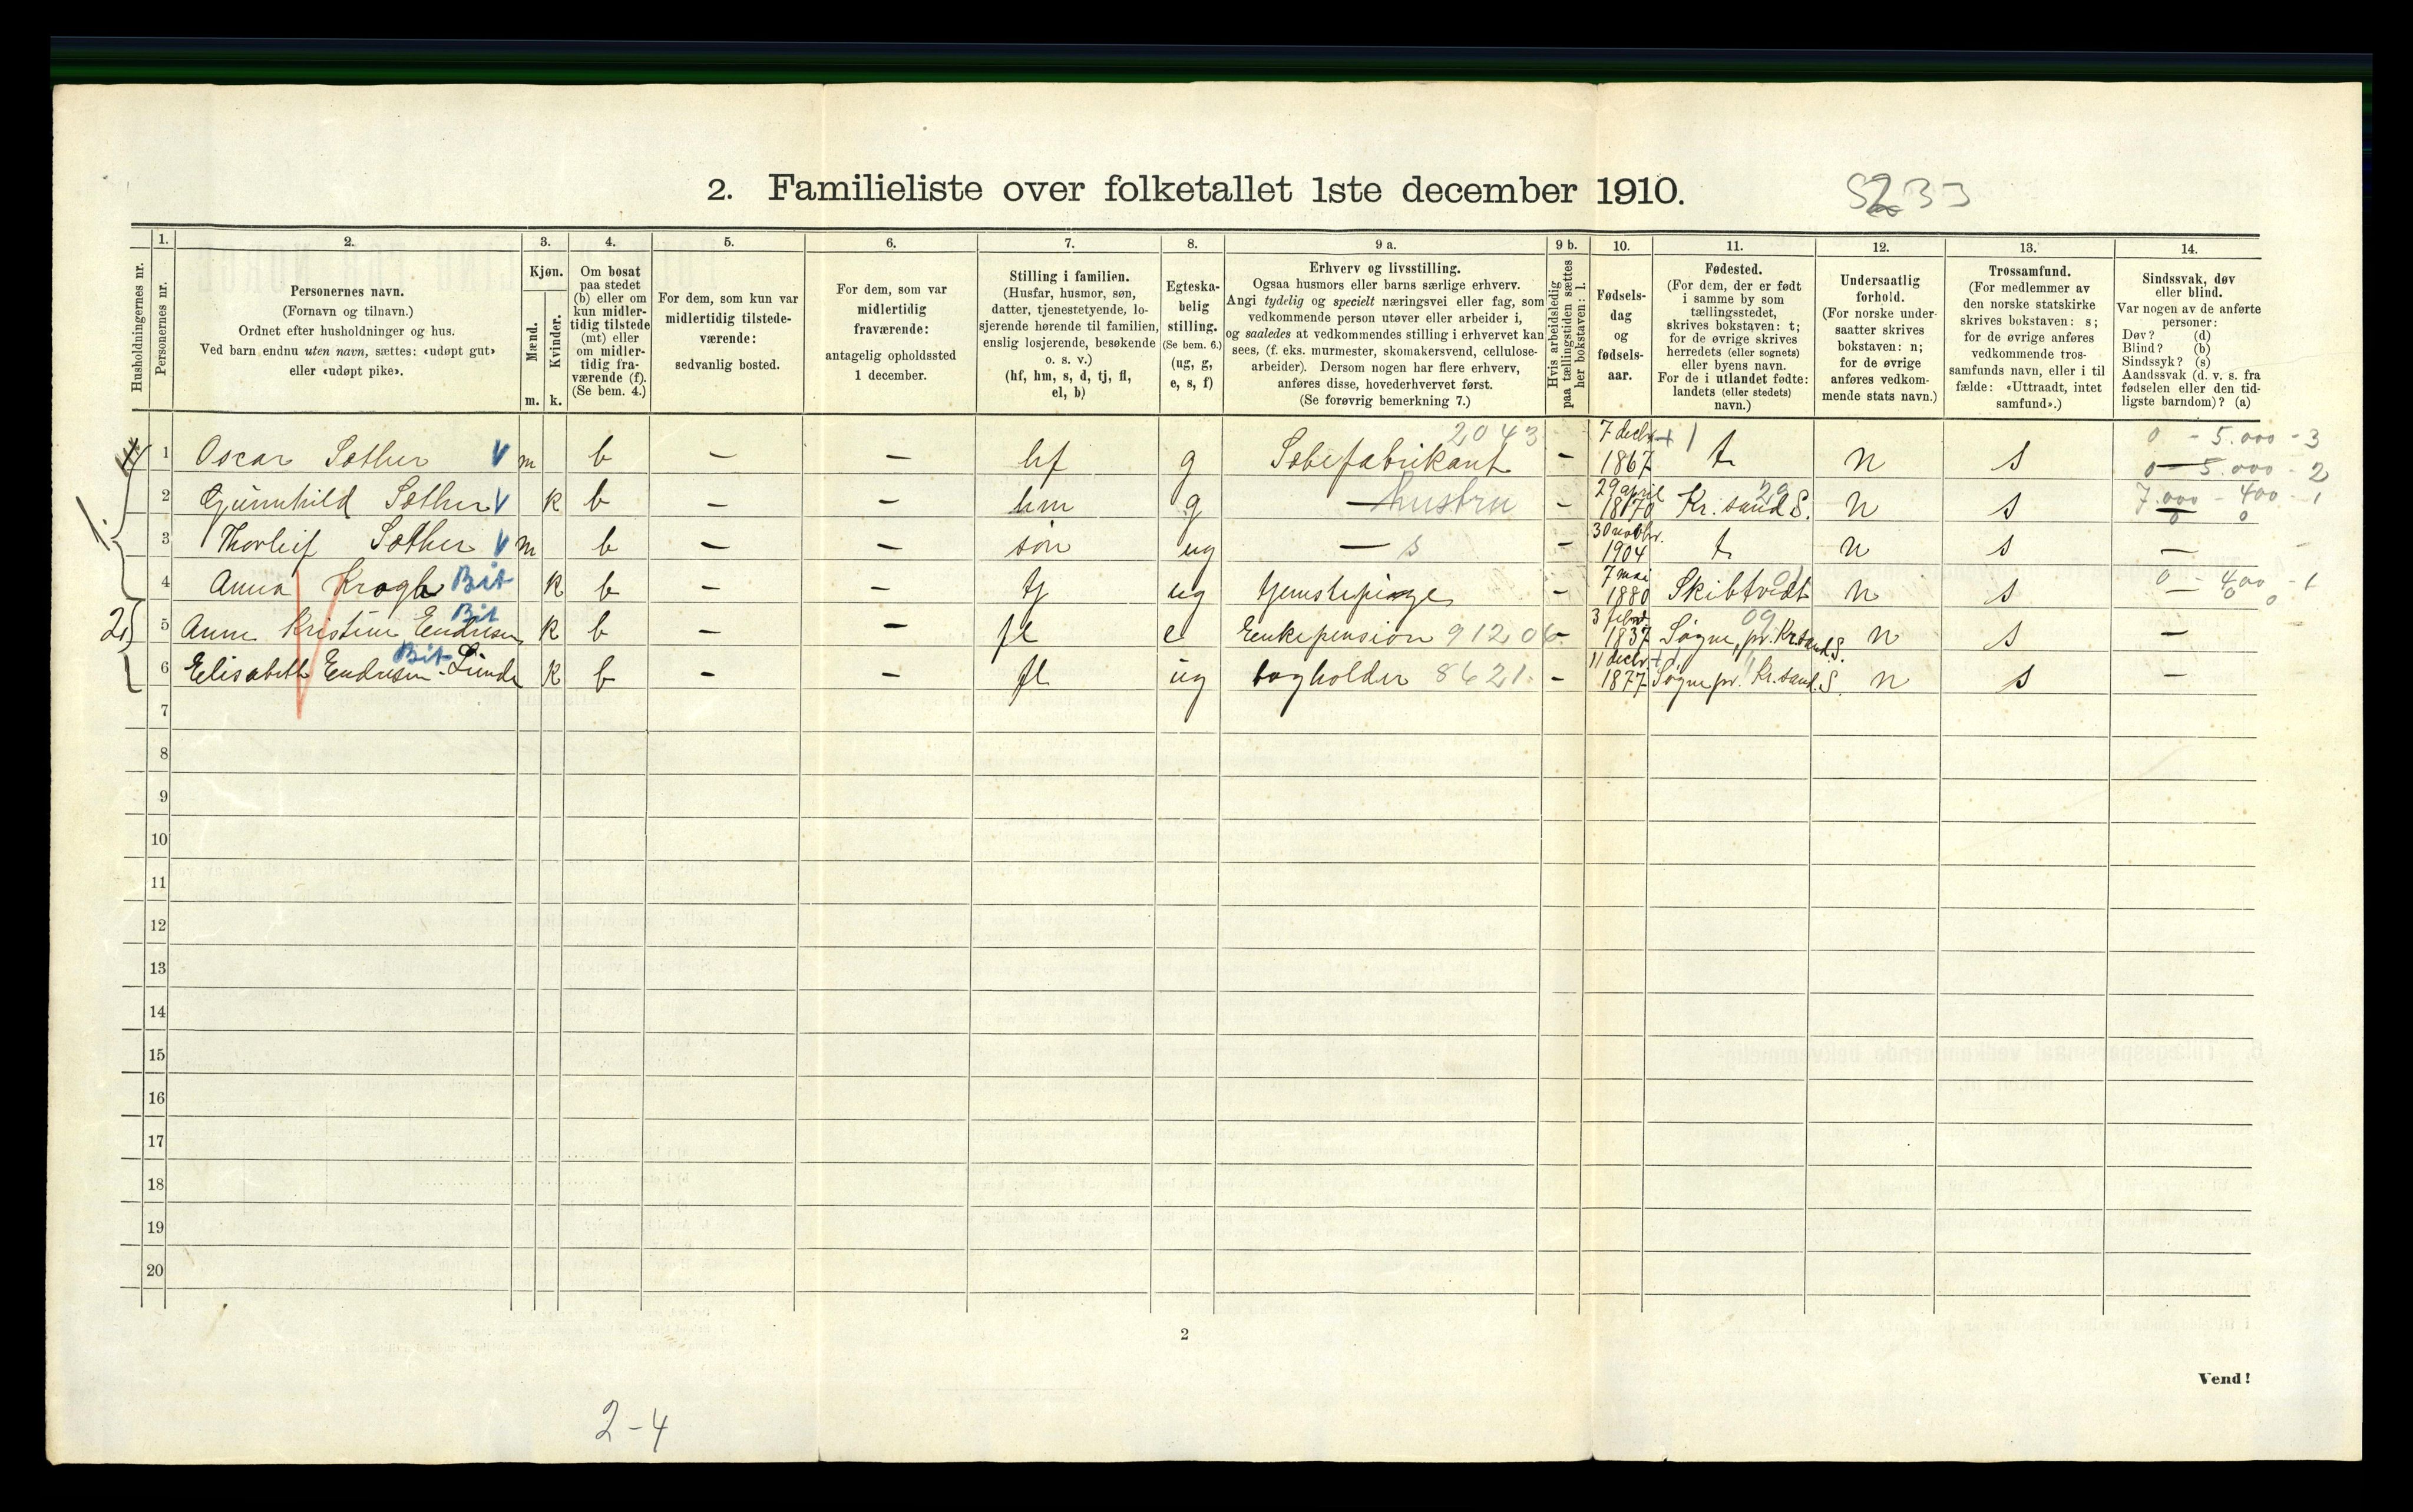 2. Familieliste over folketallet 1ste december 1910.
5233
Husholdningernes nr.
1.
Personernes nr.
2.
Personernes navn.
(Fornavn og tilnavn.)
Ordnet efter husholdninger og hus.
Ved barn endnu uten navn, sættes: «udøpt gut»
eller «udøpt pike».
3.
Kjøn.
Mænd.
Kvinder.
m. k.
4.
Om bosat
paa stedet
(b) eller om
kun midler-
tidig tilstede
(mt) eller
om midler-
tidig fra-
værende (f).
(Se bem. 4.)
5.
For dem, som kun var
midlertidig tilstede-
værende:
sedvanlig bosted.
6.
For dem, som var
midlertidig
fraværende:
antagelig opholdssted
1 december.
7.
Stilling i familien.
(Husfar, husmor, søn,
datter, tjenestetyende, lo-
sjerende hørende til familien,
enslig losjerende, besøkende
o. s. v.)
(hf, hm, s, d, tj, fl,
el, b)
8.
Egteska-
belig
stilling.
(Se bem. 6.)
(ug, g,
e, s, f)
9 a.
Erhverv og livsstilling.
Ogsaa husmors eller barns særlige erhverv.
Angi tydelig og specielt næringsvei eller fag, som
vedkommende person utøver eller arbeider i,
og saaledes at vedkommendes stilling i erhvervet kan
sees, (f. eks. murmester, skomakersvend, cellulose-
arbeider). Dersom nogen har flere erhverv,
anføres disse, hovederhvervet først.
(Se forøvrig bemerkning 7.)
9 b.
Hvis arbeidsledig
paa tællingstiden sættes
her bokstaven: l.
10.
Fødsels-
dag
og
fødsels-
aar.
11.
Fødested.
(For dem, der er født
i samme by som
tællingsstedet,
skrives bokstaven: t;
for de øvrige skrives
herredets (eller sognets)
eller byens navn.
For de i utlandet fødte:
landets (eller stedets)
navn.)
12.
Undersaatlig
forhold.
(For norske under-
saatter skrives
bokstaven: n;
for de øvrige
anføres vedkom-
mende stats navn.)
13.
Trossamfund.
(For medlemmer av
den norske statskirke
skrives bokstaven: s;
for de øvrige anføres
vedkommende tros-
samfunds navn, eller i til
fælde: «Uttraadt, intet
samfund».)
14.
Sindssvak, døv
eller blind.
Var nogen av de anførte
personer:
Døv? (d)
Blind? (b)
Sindssyk? (s)
Aandssvak (d. v. s. fra
fødselen eller den tid-
ligste barndom)? (a)
1 Oscar Sother V m b – – hf g Sæbefabrikant 2043 – 7 decbr. 1867 + 1 t n s 0 - 5.000 - 3
0 - 5.000 - 2
2 Gunnhild Sother V k b – – hm g – hustru – 29 april 1870 Kr. sand S. 20 n s 7.000 - 400 - 1
0 0
3 Thorleif Sother V m b – – søn ug – s – 30 novbr. 1904 t n s –
4 Anna Krogh Bit k b – – tj ug tjenestepige – 7 mai 1880 Skibtvedt 01 n s 0 - 400 - 1
– 0 0
2) 5 Anne Kristine Endresen Bit k b – – fl e Enkepension 91206 – 3 febr. 1837 Søgne, pr. Kr.sand. S. 09 n s –
6 Elisabeth Endresen-Lunde Bit k b – – fl ug bogholder 8621 – 11 decbr. 1877 + Søgne pr. Kr.sand. S. n s –
7
8
9
10
11
12
13
14
15
16
17
18
19
20
2
Vend!
2-4